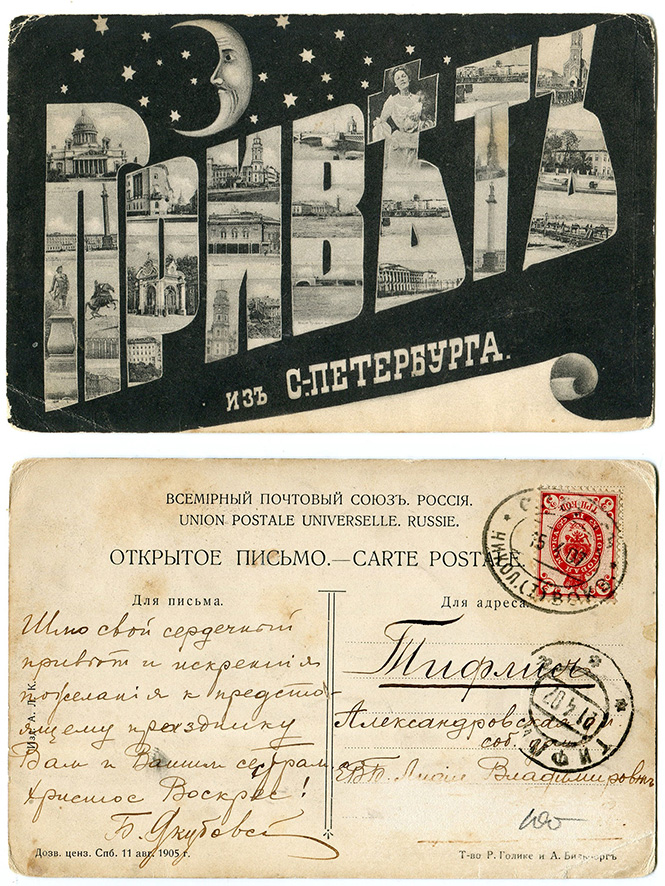 ПРИВѢТЪ
ИЗЪ С.-ПЕТЕРБУРГА.
ВСЕМІРНЫЙ ПОЧТОВЫЙ СОЮЗЪ. РОССІЯ.
UNION POSTALE UNIVERSELLE. RUSSIE.
ОТКРЫТОЕ ПИСЬМО.—CARTE POSTA
Для письма.
Шлю свой сердечный
привѣт и искреннія
пожеланія к предсто-
ящему празднику
Вам и Вашим сестрам.
Христос Воскрес!
Б. Якубовс
Изд. А. Л. К.
Дозв. ценз. Спб. 11 авг. 1905 г.
Для адреса.
Тифлисъ
Александровская
соб.
ЕВП. Лидіи Владиміровнѣ
ТИФЛ
400
Т-во Р. Голике и А. Вильборгъ